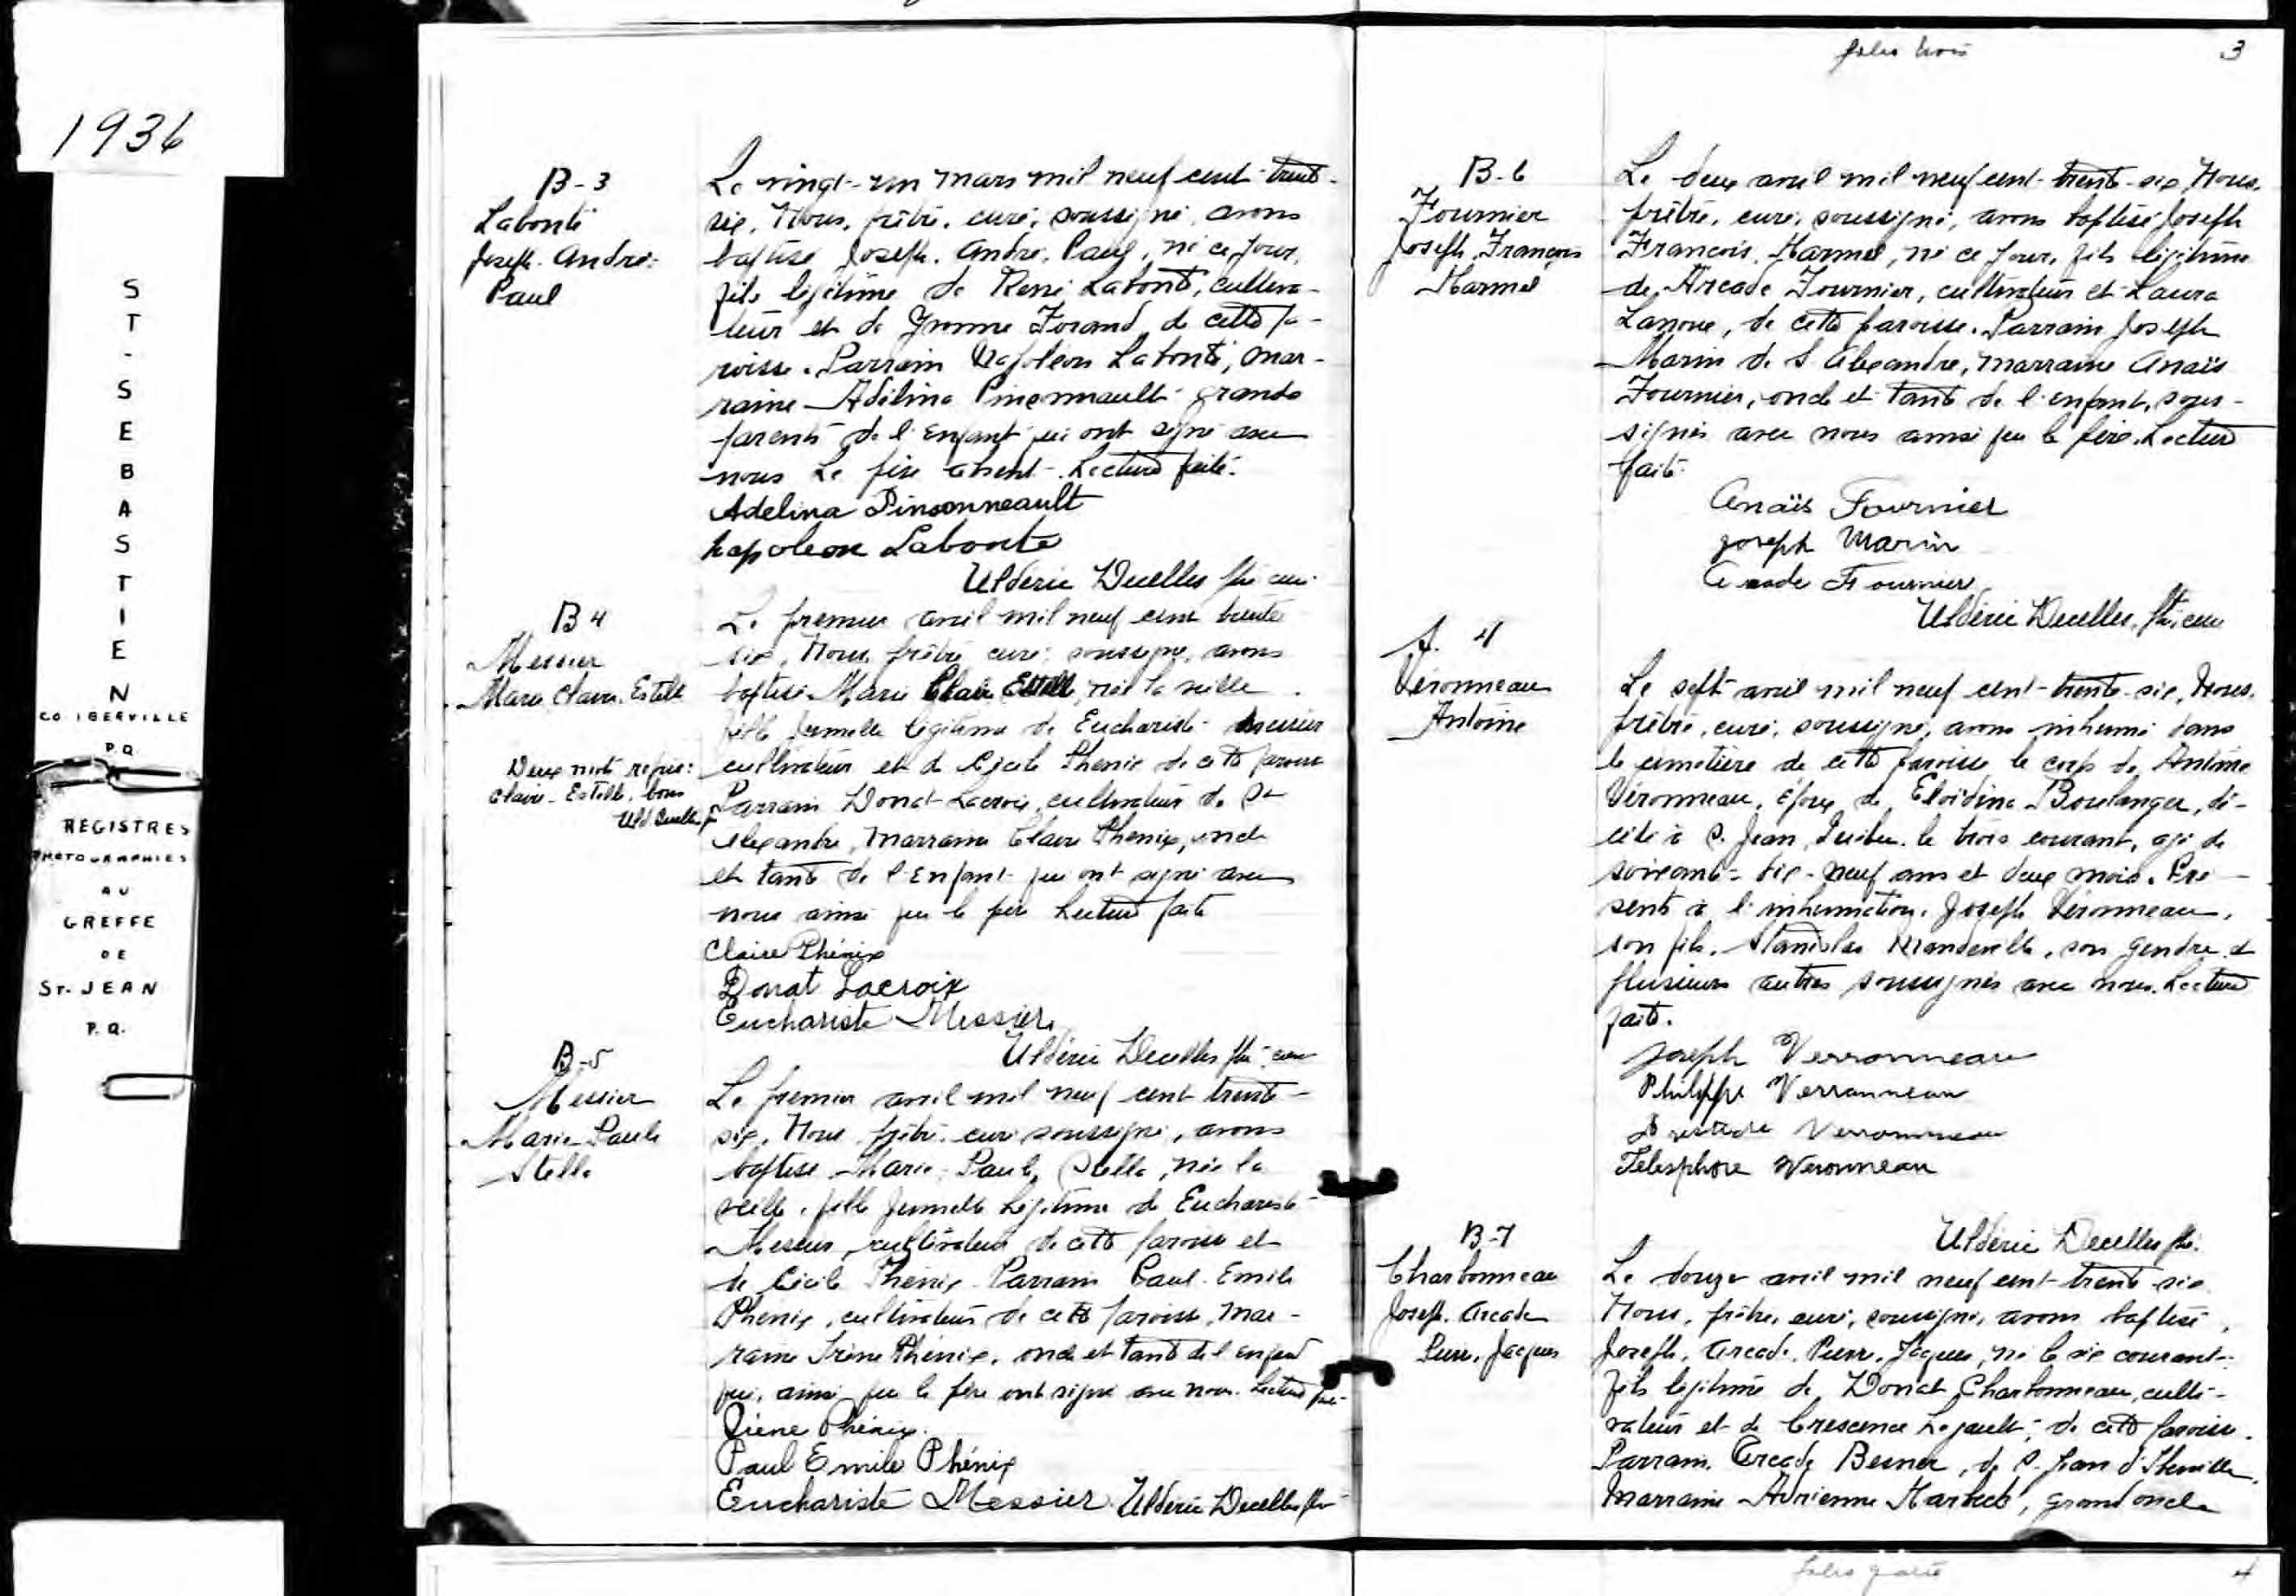 1936
ST-SEBASTIEN
CO IBERVILLE
P.Q.
REGISTRES
PHOTOGRAPHIES
AU
GREFFE
DE
ST. JEAN
P.Q.
B-3
Labonté
Joseph. André.
Paul
Le vingt-un mars mil neuf cent trente-
six, Nous, prêtre, curé, soussigné, avons
baptisé Joseph. André. Paul, né ce jour,
fils légitime de René Labonté, cultiva-
teur et de Yvonne Forand de cette pa-
roisse. Parrain Napoléon Labonté, mar-
raine Adélina Pinsonnault grands
parents de l'enfant qui ont signé avec
nous Le père absent. Lecture faite.
Adelina Pinsonneault
Napoleon Labonte
Uldéric Decelles ptre curé
B 4
Messier
Marie Claire. Estelle
Deux mots rayés:
Claire-Estelle, bons
Uld Decelles p
Le premier avril mil neuf cent trente
six, Nous, prêtre curé, soussigné, avons
baptisé Marie Claire Estelle, née la veille
fille jumelle légitime de Euchariste Messier
cultivateur et de Cécile Phenix de cette paroisse
Parrain Donat Lacroix, cultivateur de St
Alexandre, Marraine Claire Phenix, oncle
et tante de l'Enfant qui ont signé avec
nous ainsi que le père Lecture faite
Claire Phénix
Donat Lacroix
Euchariste Messier
Uldéric Decelles ptre curé
B-5
Messier
Marie-Paule
Stella
Le premier avril mil neuf cent trente-
six, Nous prêtre, curé soussigné, avons
baptisé Marie, Paule, Stella, née la
veille, fille jumelle légitime de Euchariste
Messier, cultivateur de cette paroisse et
de Cécile Phénix. Parrain Paul-Emile
Phenix, cultivateur de cette paroisse, mar-
raine Irène Phénix, oncle et tante de l'enfant
qui, ainsi que le père ont signé avec nous. Lecture faite
Irène Phénix.
Paul Emile Phénix
Euchariste Messier Uldéric Decelles ptre
folio trois 3
B-6
Fournier
Joseph, François
Marmel
Le deux avril mil neuf cent-trente-six, Nous,
prêtre, curé, soussigné, avons baptisé Joseph
François, Marmel, né ce jour, fils légitime
de Arcade Fournier, cultivateur et Laura
Lanoue, de cette paroisse. Parrain Joseph
Marin de S. Alexandre, marraine Anaïs
Fournier, oncle et tante de l'enfant, sous-
signés avec nous ainsi que le père. Lecture
faite.
Anaïs Fournier
Joseph Marin
Arcade Fournier
Uldéric Decelles, ptre, curé
S. 4
Véronneau
Antoine
Le sept avril mil neuf cent-trente-six, Nous,
prêtre, curé, soussigné, avons inhumé dans
le cimetière de cette paroisse le corps de Antoine
Véronneau, époux de Eloidina Boulanger, dé-
cédé à S. Jean, Québec le trois courant, agé de
soixante-dix-neuf ans et deux mois. Pré-
sents à l'inhumation, Joseph Véronneau,
son fils, Stanislas Mandeville, son gendre et
plusieurs autres soussignés avec nous. Lecture
faite.
Joseph Verronneau
Philippe Verronneau
Verronneau
Télesphore Veronneau
Uldéric Decelles ptre.
B-7
Charbonneau
Joseph. Arcade
Pierre. Jacques
Le douze avril mil neuf cent-trente-six
Nous, prêtre, curé, soussigné, avons baptisé,
Joseph, Arcade, Pierre, Jacques, né le six courant,
fils légitime de Donat Charbonneau, culti-
vateur et de Crescence Legault, de cette paroisse.
Parrain, Arcade Besner, de S. Jean d'Iberville,
Marraine Adrienne Marbeck, grand oncle
folio quatre 4